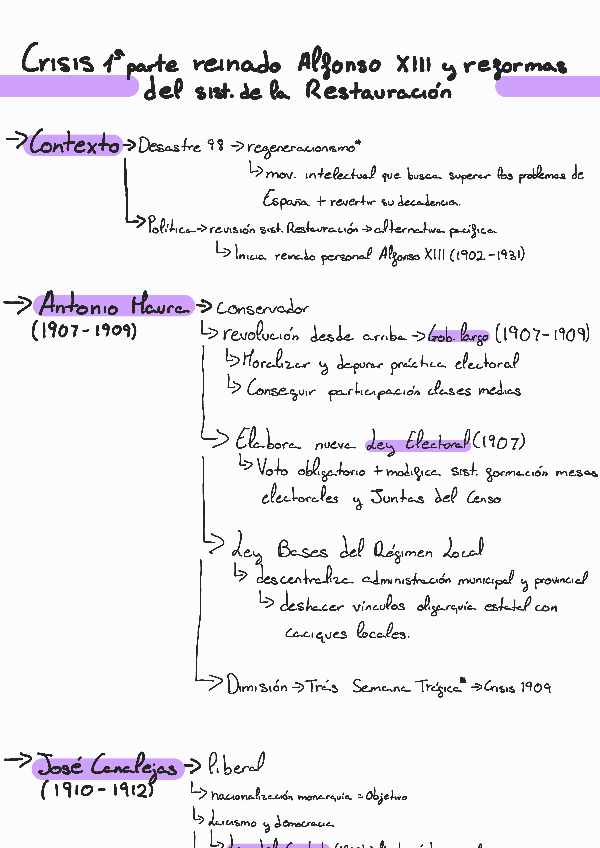 Crisis 1ª parte reinado Alfonso XIII y reformas
del sist. de la Restauración
→ Contexto → Desastre 98 → regeneracionismo*
↳ mov. intelectual que busca superar los problemas de
España + revertir su decadencia.
↳ Política → revisión sist. Restauración → alternativa pacífica
↳ Inicia reinado personal Alfonso XIII (1902-1931)
→ Antonio Maura → Conservador
(1907-1909)
↳ revolución desde arriba → Gob. largo (1907-1909)
↳ Moralizar y depurar práctica electoral
↳ Conseguir participación clases medias
↳ Elabora nueva Ley Electoral (1907)
↳ Voto obligatorio + modifica sist. formación mesas
electorales y Juntas del Censo
↳ Ley Bases del Régimen Local
↳ descentraliza administración municipal y provincial
↳ deshacer vínculos oligarquía estatal con
caciques locales.
↳ Dimisión → Trás Semana Trágica* → Crisis 1909
→ José Canalejas → liberal
(1910-1912)
↳ nacionalización monarquía = Objetivo
↳ laicismo y democracia